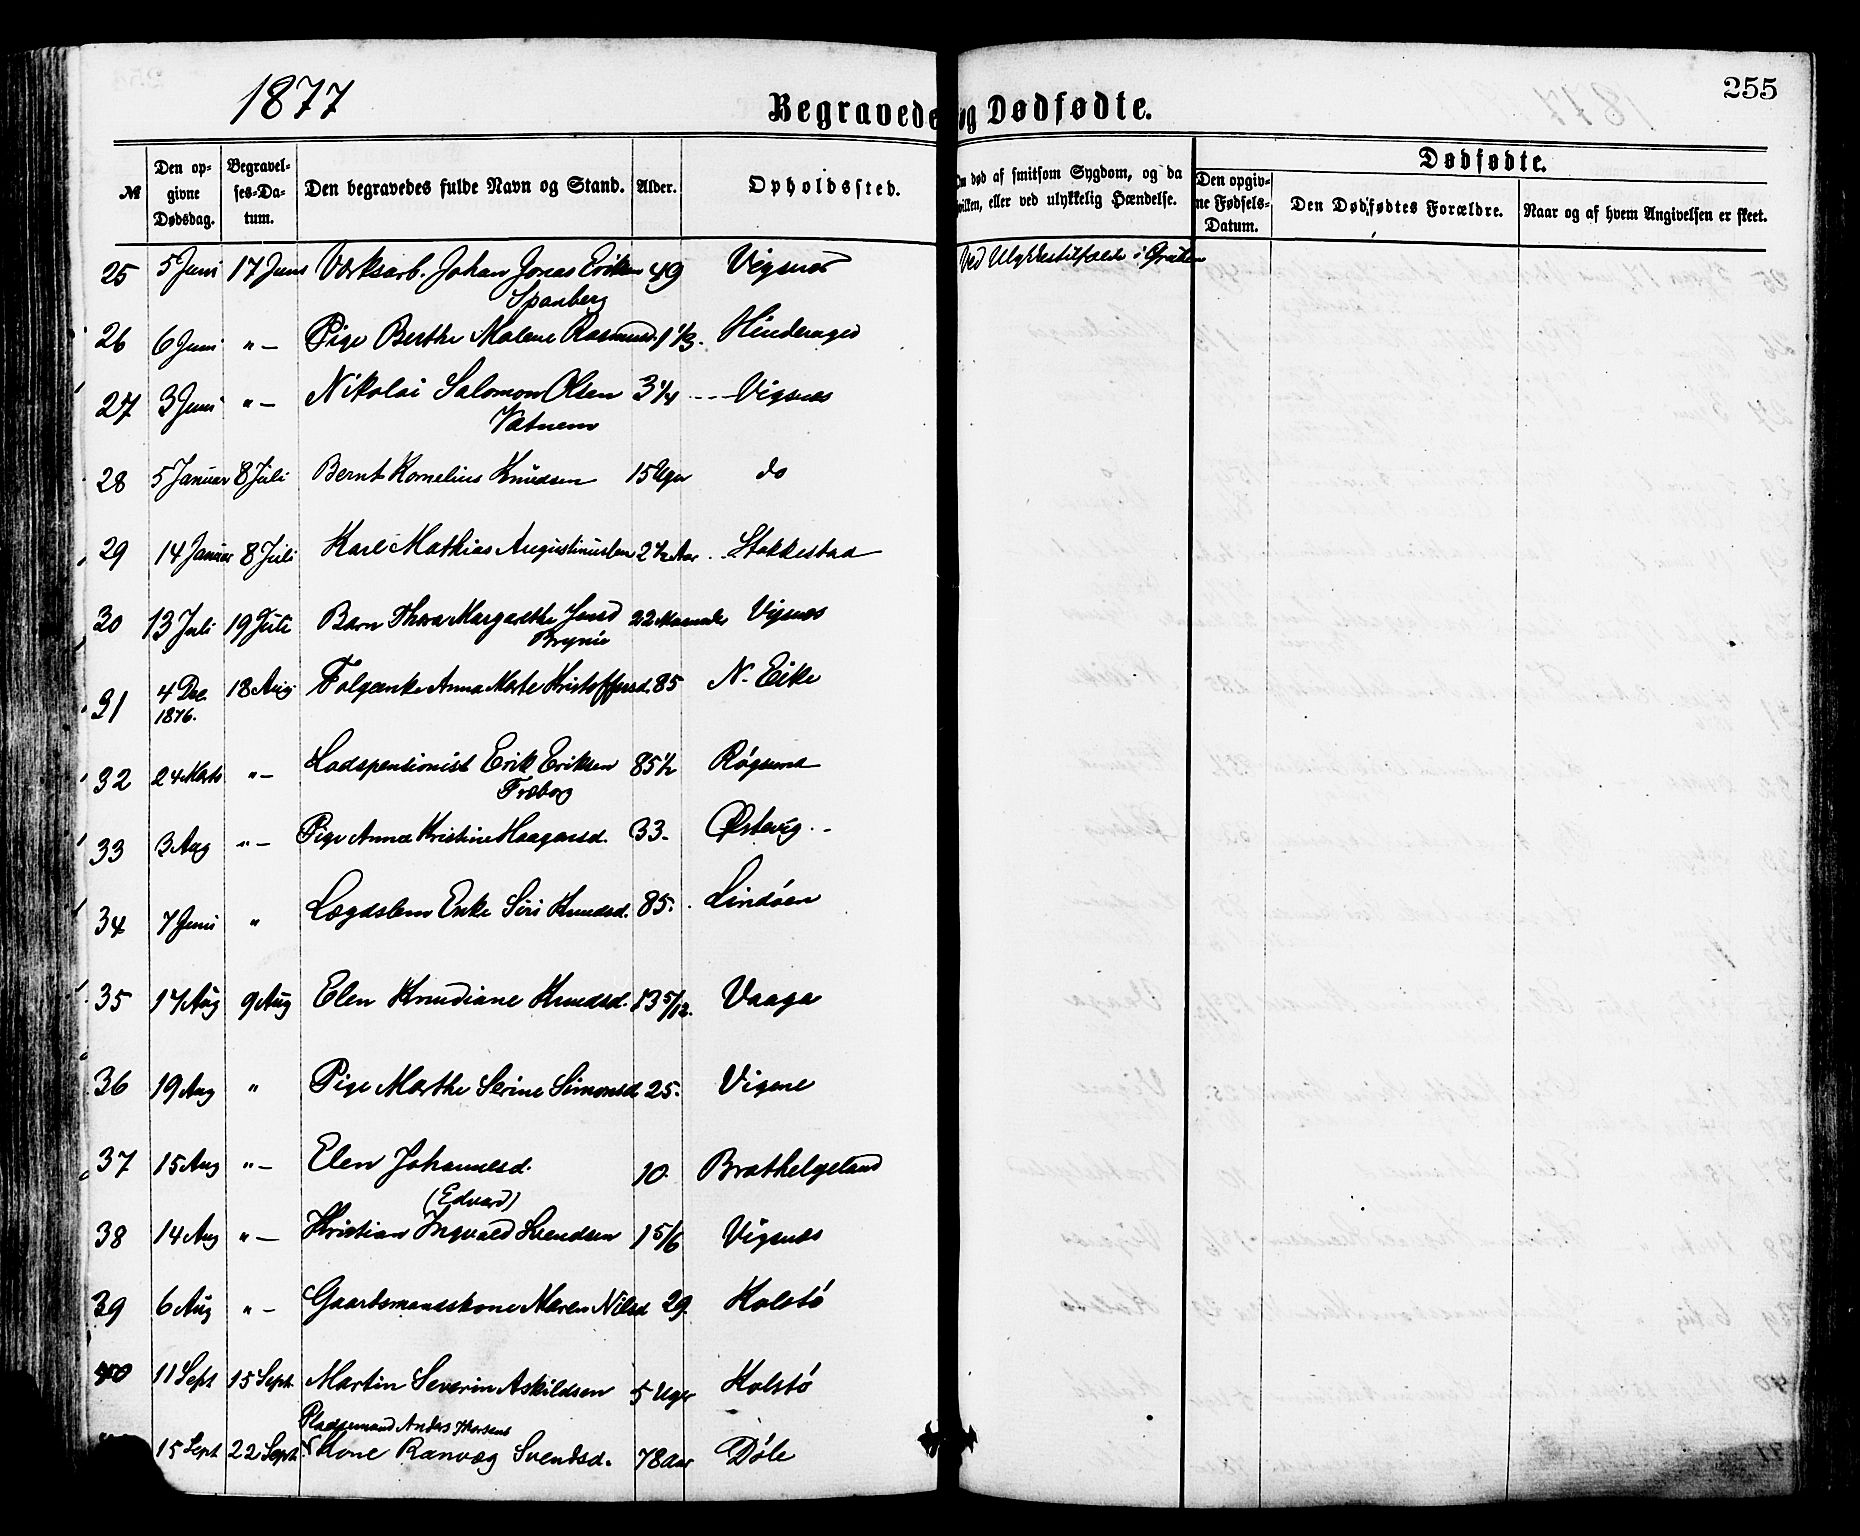 1877
255
Begravede og Dødfødte.
№ Den opgivne Dødsdag. Begravelses-Datum. Den begravedes fulde Navn og Stand. Alder. Opholdssted. død af smitsom Sygdom, og da hvilken, eller ved ulykkelig Hændelse. Dødfødte. Den opgivne Fødsels-Datum. Den Dødfødtes Forældre. Naar og af hvem Angivelsen er skeet.
25 5 Juni 17 Juni Værksarb. Johan Jonas Eriksen 49 Vigsnæs Ved Ulykkestilfælde i Gruben
Spanberg
26 6 Juni "— Pige Berthe Malene Rasmusd. 1 1/3. Hinderager
27 3 Juni "— Nikolai Salomon Olsen 3 1/4 --- Vigsnæs
Vatnem
28 5 Januar 8 Juli Bernt Kornelius Knudsen 15 Uger do
29 14 Januar 8 Juli Karl Mathias Augustinussen 2 1/2 Aar. Stokkestad
30 13 Juli 19 Juli Barn Thora Margarethe Jensd 22 Maaneder Vigsnæs
Brynie
31 4 Dec. 18 Aug Folgeenke Anna Marte Kristoffersd. 85 N. Eike
1876.
32 24 Marts "— Ladspensionist Erik Eriksen 85 1/2 Røgsund
Fræborg
33 3 Aug "— Pige Anna Kristine Haagensd. 33. Østevig.
34 7 Juni " Lægdslem Enke Siri Knudsd. 85. Lindøen
35 17 Aug 9 Aug Elen Knudiane Knudsd. 13 5/12. Vaaga
36 19 Aug " Pige Marthe Serine Simonsd 25. Vigene
37 15 Aug "— Elen Johannesd. 10. Bratthelgeland
(Edvard)
38 14 Aug "— Kristian Ingvald Svendsen 1 5/6 Vigsnæs
39 6 Aug "— Gaardsmandskone Maren Nilsd 29. Kolstø
40 11 Sept 15 Sept. Martin Severin Askildsen 5 Uger Kolstø
Pladsemand Anders Thorsens
15 Sept 22 Sept. Kone Ranvæg Svendsd. 78 Aar Døle